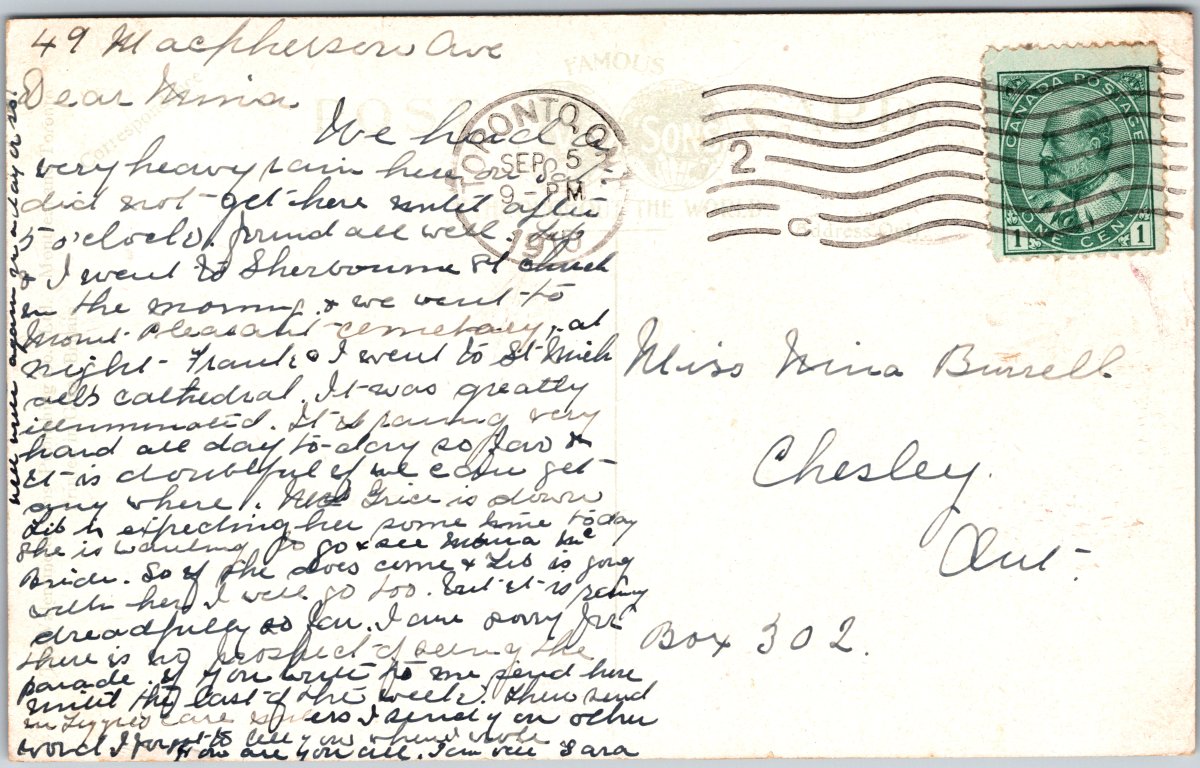 49 Macpherson Ave
Dear Nina.
We had a
very heavy rain here on Sat.
did not get here until after
5 o'clock. found all well. Lib
& I went to Sherbourne St church
in the morning. & we went to
Mount Pleasant cemetary, at
night - Frank & I went to St Mich
aels cathedral. It was greatly
illuminated. It is raining very
hard all day to-day so far &
it is doubtful if we can get
any where. Grice is down
Lib is expecting her some time today
She is wanting to go & see Mina Mc
Bride. So if she does come & Lib is going
with her I will go too. but it is raining
dreadfully so far. I am sorry for
there is no prospect of seeing the
parade. if you write to me send here
until the last of the week. then send
in care I send you other
word I forgot to tell you when I wrote
How are you all. I am well Sara
well rain again Sunday or so.
TORONTO, ONT.
SEP 5
9 - PM
2
C
CANADA POSTAGE
ONE CENT
1 1
FAMOUS
POST CARD
SONS
THE WORLD
Correspondence
Address Only
Miss Nina Burrell
Chesley.
Ont.
Box 302.